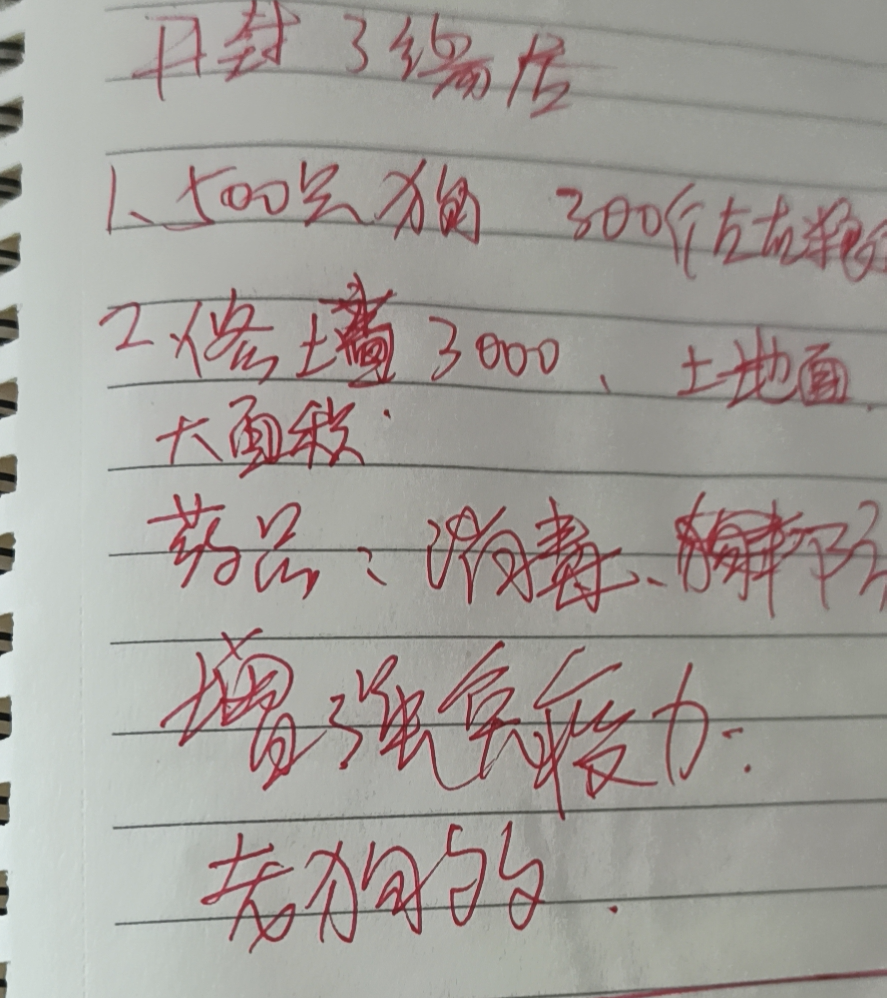 1、500只狗 300斤左右粮
2、修土墙3000、土地面
大面积.
药品：消毒、
增强免疫力.
老狗的.